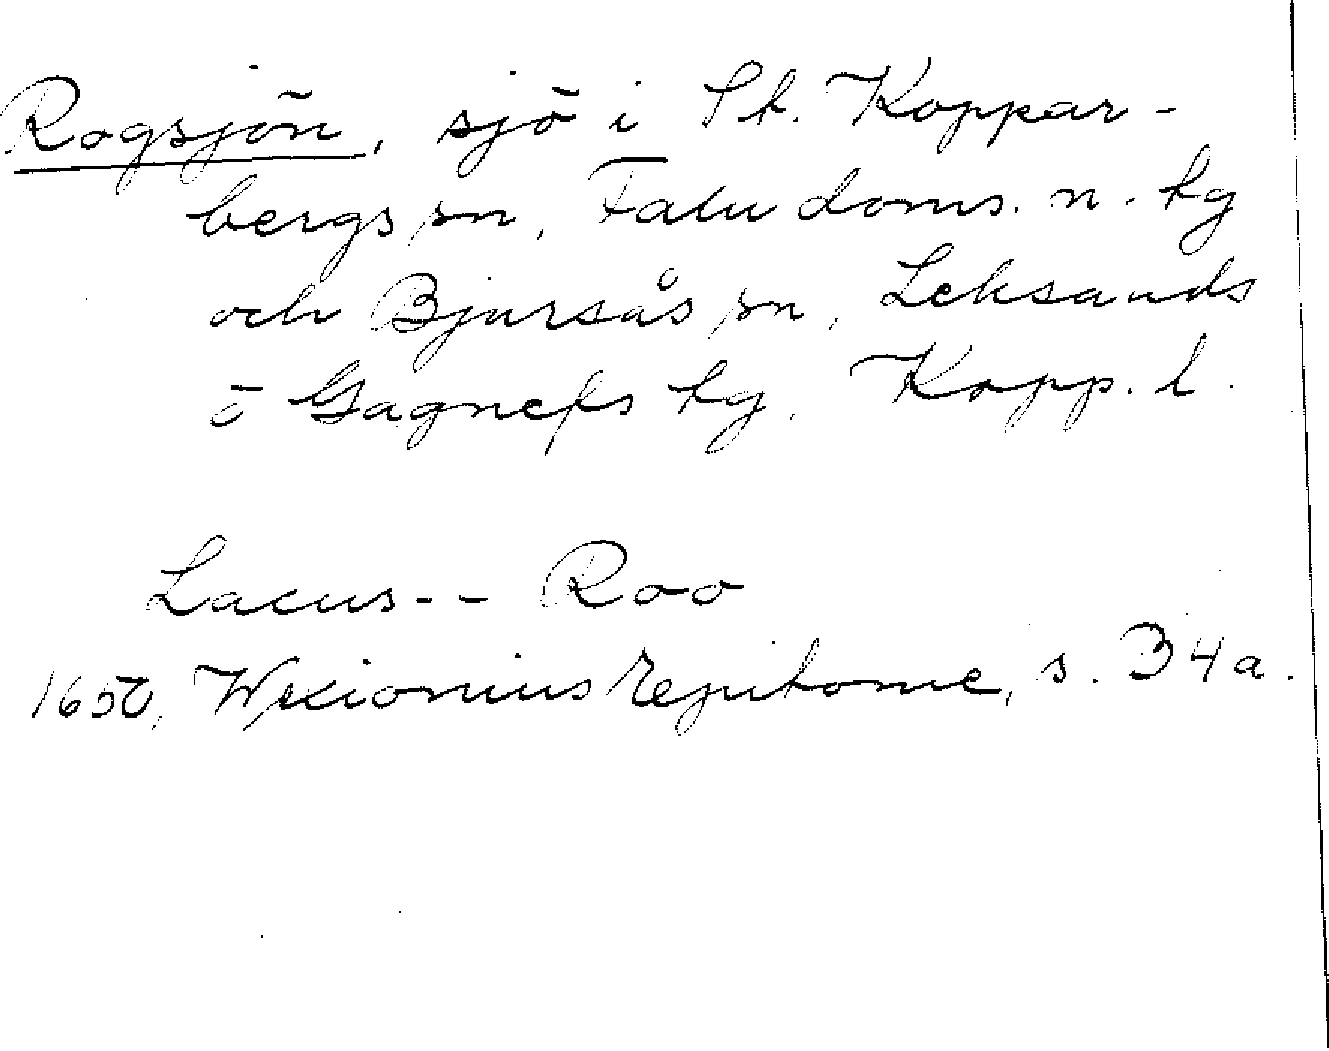 Rogsjön, sjö i St. Koppar-
bergs sn, Falu doms. n. tg
och Bjursås sn, Leksands
o Gagnefs tg. Kopp. l.
Lacus -- Roo
1650, Wexionius Epitome, s. B4a.